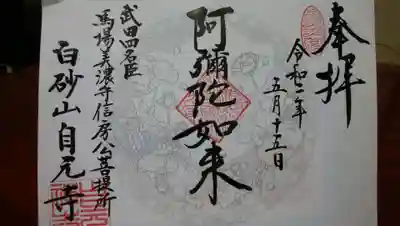 奉拝
令和二年
五月十五日
阿彌陀如来
武田四名臣
馬場美濃守信房公菩提所
白砂山自元寺